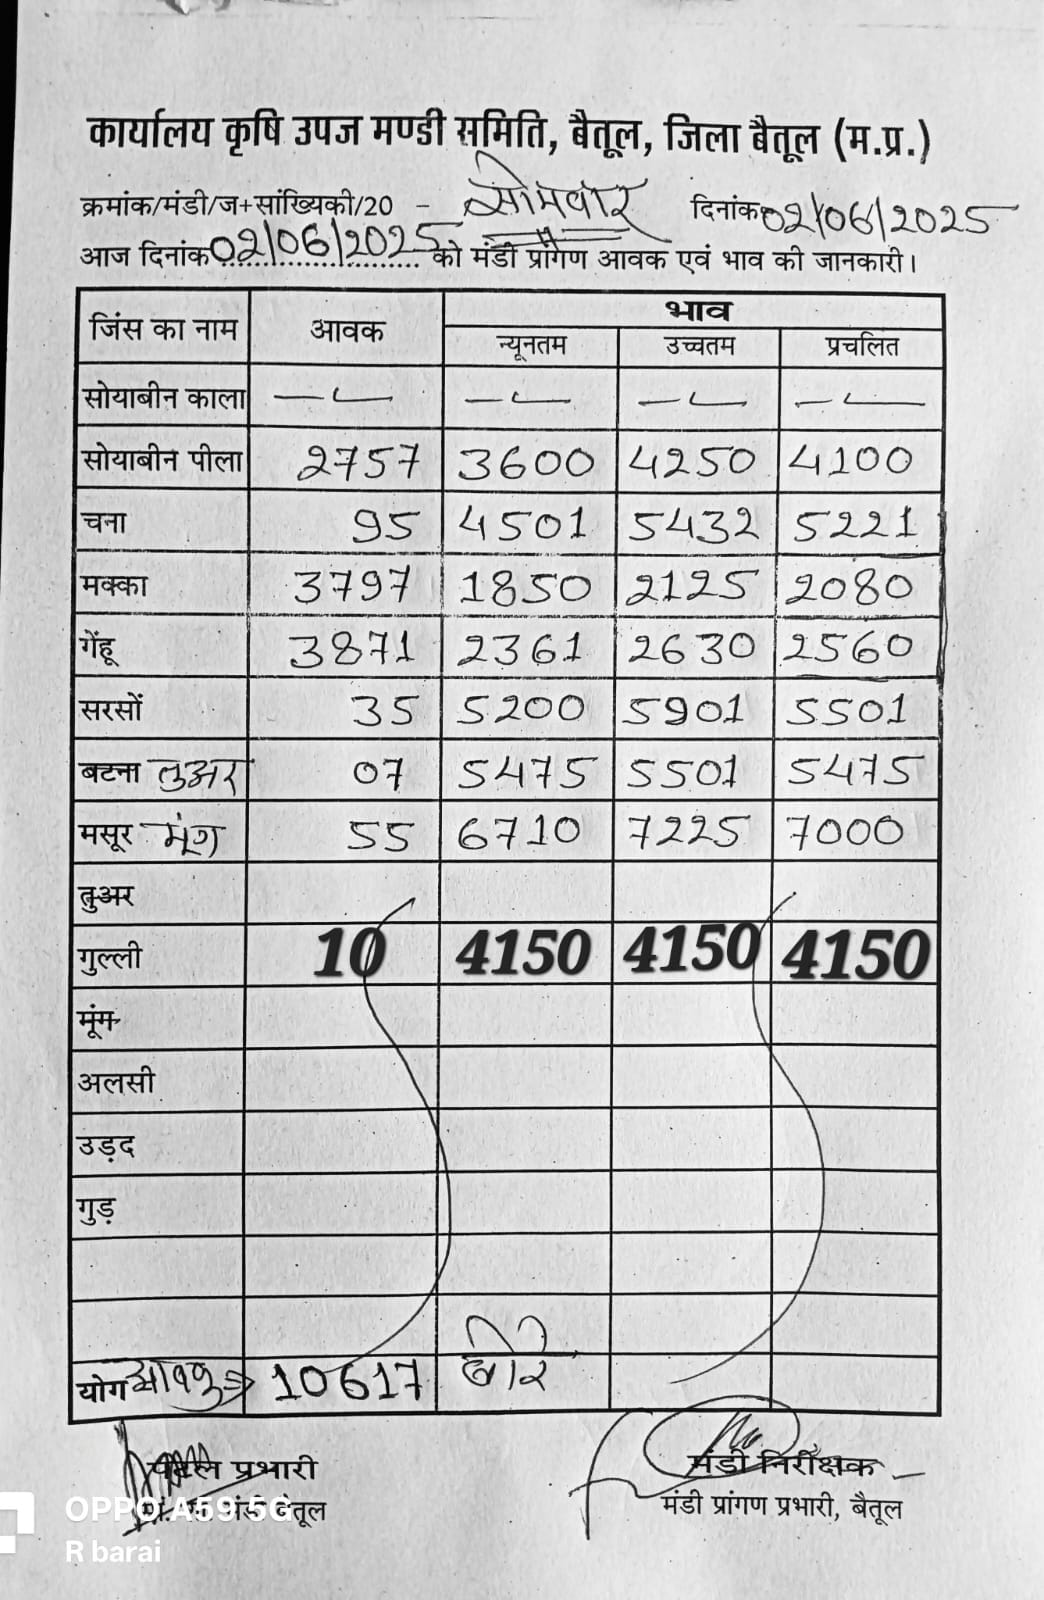 कार्यालय कृषि उपज मण्डी समिति, बैतूल, जिला बैतूल (म.प्र.)
क्रमांक/मंडी/ज+सांख्यिकी/20 - सोमवार दिनांक 02/06/2025
आज दिनांक 02/06/2025 को मंडी प्रांगण आवक एवं भाव की जानकारी।
जिंस का नाम आवक भाव
न्यूनतम उच्चतम प्रचलित
सोयाबीन काला — — — —
सोयाबीन पीला 2757 3600 4250 4100
चना 95 4501 5432 5221
मक्का 3797 1850 2125 2080
गेंहू 3871 2361 2630 2560
सरसों 35 5200 5901 5501
बटना तुअर 07 5475 5501 5475
मसूर मूंग 55 6710 7225 7000
तुअर
गुल्ली 10 4150 4150 4150
मूंग
अलसी
उड़द
गुड़
योग आवक 10617 बोरे
प्रभारी मंडी निरीक्षक
मंडी बैतूल मंडी प्रांगण प्रभारी, बैतूल
OPPO A59 5G
R barai